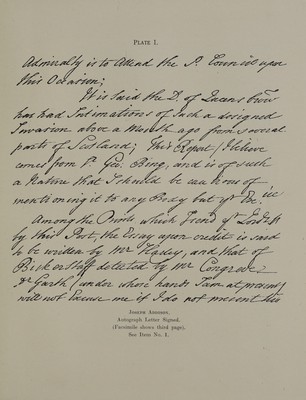 PLATE I.
Admiralty is to Attend the P. Council upon
this Occasion;
It is said the D. of Queens
has had Intimations of such a designed
Invasion above a Month ago from several
parts of Scotland; This Expert I believe
comes from Sr. Geo. Bing, and is of such
a Nature that I should be cautious of
mentioning it to any Body but yr
Among the Prints which I send yr Lordsp
by this Post, the Essay upon credit is said
to be written by Mr Harley, and that of
Bickerstaff detected by Mr Congreve
Dr Garth (under whose hands I am at present)
will not Excuse me if I do not present
JOSEPH ADDISON.
Autograph Letter Signed.
(Facsimile shows third page).
See Item No. 1.